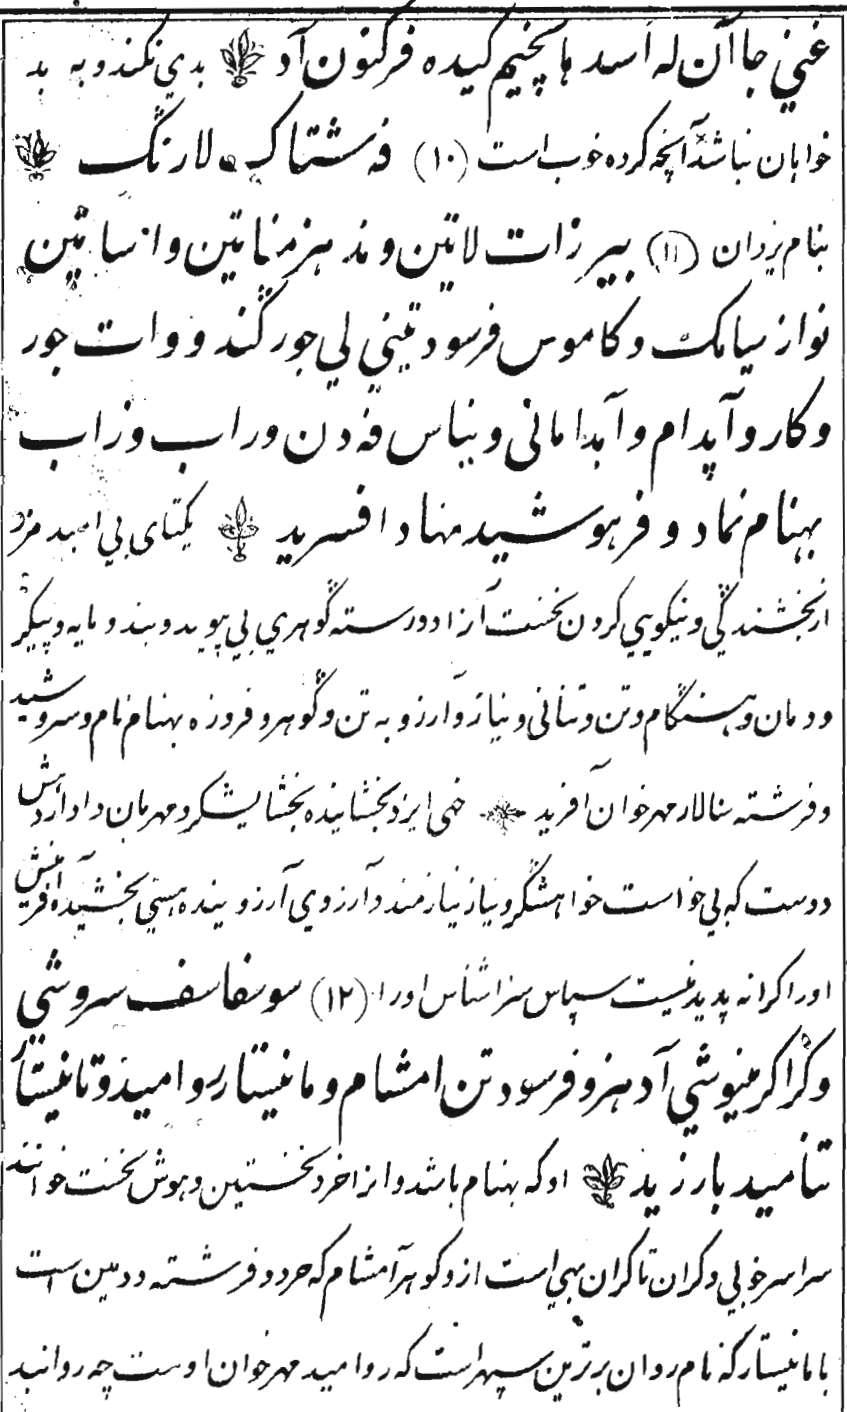 غني جاآن له اسد ها پخيم كيده فركنون آد بدي نكند و به بد
خواهان نباشد آنچه كرده خوب است (١٠) فه شتاك لارنگ
بنام يزدان (١١) بيرزات لاتين و مذ هزمناتين و انساتين
نواز سيامك و كاموس فرسود تيني لي جور كند و وات جور
و كار و آپدام و آبدامانى و بناس فه دن وراب و زاب
بهنام نماد و فرهوشيد منهاد افسريد يكتاى بي اميد مزد
از بخشندگي و نيكويي كردن نخست آزاد و رسته گوهري بي پويد و بند و مايه و پيكر
و دمان و هنگام و تن و تنانى و نياز و آرزو به تن و گوهر و فروزه بهنام نام و سروشيد
و فرشته سالار مهرخوان آفريد خهى ايزد بخشاينده بخشايشگر و مهربان دادار دهش
دوست كه بي خواست خواهشگر و نياز نيازمند و آرزوي آرزو بنده هستي بخشيد آفرينش
او را كرانه پديد نيست سپاس سزا شناس او را (١٢) سونفاسف سروشي
و كراكر مينوشي آد هزو فرسود تن امشام و مانيستار روا ميد و تانيستار
تناميد بارزيد او كه بهنام باشد و انرا خرد نخستين و هوش نخست خوانند
سراسر خوبي و كران تا كران بهي است ازو گوهر آمشام كه خرد و فرشته دومين است
با مانيستار كه نام روان برترين سپهر است كه روا ميد مهرخوان اوست چه روانبد